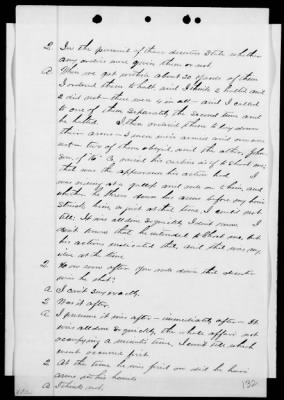 Q. In the pursuit of these deserters state whether
any orders were given them or not.
A. When we got within about 20 yards of them
I ordered them to halt and I think 2 halted and
2 did not - there were 4 in all - and I called
to one of them separately the second time and
he halted. I then ordered them to lay down
their arms - 3 men were armed and one was
not - two of them obeyed, and the other, John
of "G" Co, raised his carbine as if to shoot me;
that was the appearance his action had. I
was coming at a gallop and was on him, and
whether he threw down his arms before my
struck him or just at that time, I could not
tell. It was all done so quickly. I don't
know that he intended to shoot me, but
his actions indicated that, and that was my
idea at the time.
Q. How soon after you rode down this deserter
was he shot?
A. I can't say exactly.
Q. Was it after.
A. I presume it was after - immediately after - It
was all done so quickly, the whole affair not
occupying a minute's time, I can't tell which
event occurred first.
Q. At the time he was fired on did he have
arms in his hands
A. I think not.
132